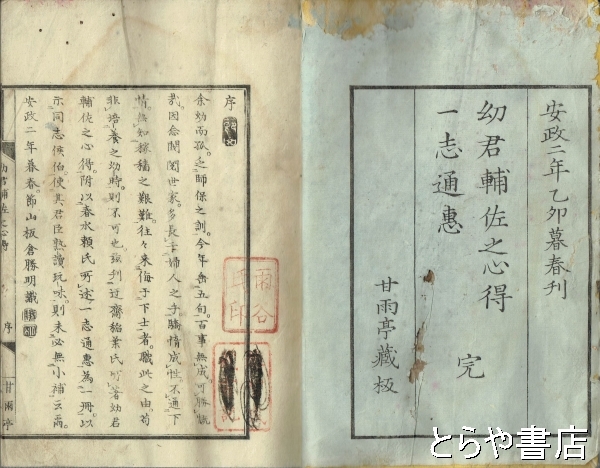 安政二年乙卯暮春刊
幼君輔佐之心得
一志通惠
完
甘雨亭藏板
序
余幼而孤。乏師保之訓。今年垂五旬。百事無成。可勝慨
哉。因念閥閱世家。多長于婦人之手。驕惰成性。不通下
情。無知稼穡之艱難。往々來侮于下士者。職此之由。苟
非培養之幼時。則不可也。玆刊迂齋稻葉氏所著幼君
輔佐之心得。附以春水賴氏所述一志通惠為一冊。以
示同志侯伯。使其君臣熟讀玩味。則未必無小補云爾。
安政二年暮春。節山板倉勝明識
幼君輔佐之心得
序
甘雨亭
とらや書店